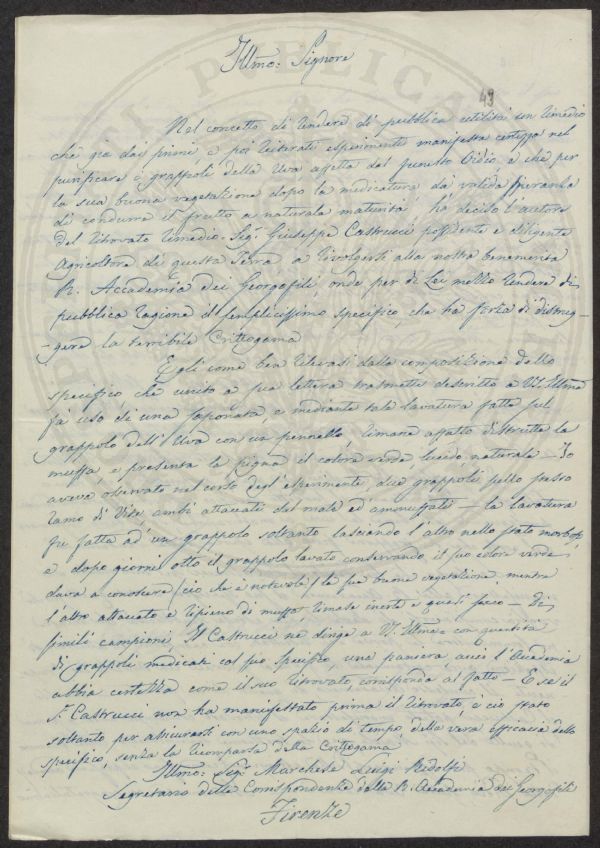 Illmo: Signore
49
Nel concetto di rendere di pubblica utilità un rimedio
che già dai primi e poi reiterati esperimenti manifesta certezza nel
purificare i grappoli della Uva affetta dal funesto Oidio, e che per
la sua buona vegetazione dopo la medicatura dà valida speranza
di condurre il frutto a naturale maturità ha deciso l'autore
del ritrovato rimedio Sigr. Giuseppe Castrucci possidente e diligente
Agricoltore di questa Terra a rivolgersi alla nostra benemerita
R. Accademia dei Georgofili, onde per di Lei mezzo rendere di
pubblica ragione il semplicissimo specifico, che ha forza di distrug-
-gere la terribile Crittogama
Egli come ben rilevasi dalla composizione dello
specifico che unito a sua lettera trasmette descritto a V.S. Illma
fà uso di una saponata, e mediante tale lavatura fatta sul
grappolo dell'Uva con un pennello, rimane affatto distrutta la
muffa, e presenta la pigna il colore verde, lucido naturale - Io
aveva osservato nel corso degl'esperimenti, due grappoli nello stesso
ramo di Vite ambi attaccati dal male ed ammuffati - la lavatura
fu fatta ad un grappolo soltanto lasciando l'altro nello stato morboso,
e dopo giorni otto il grappolo lavato conservando il suo colore verde
dava a conoscere (ciò che è notevole) la sua buona vegetazione, mentre
l'altro attaccato e ripieno di muffa, rimase inerte e quasi secco - Di
simili campioni, Il Castrucci ne dirige a V.S. Illma con quantità
di grappoli medicati col suo specifico, una paniera, acciò l'Accademia
abbia certezza come il suo ritrovato, corrisponda al fatto - E se il
S. Castrucci non ha manifestato prima il ritrovato, è ciò stato
soltanto per assicurarsi con uno spazio di tempo, della vera efficacia dello
specifico, senza la ricomparsa della Crittogama
Illmo: Sigr. Marchese Luigi Ridolfi
Segretario delle Corrispondenze della R. Accademia dei Georgofili
Firenze